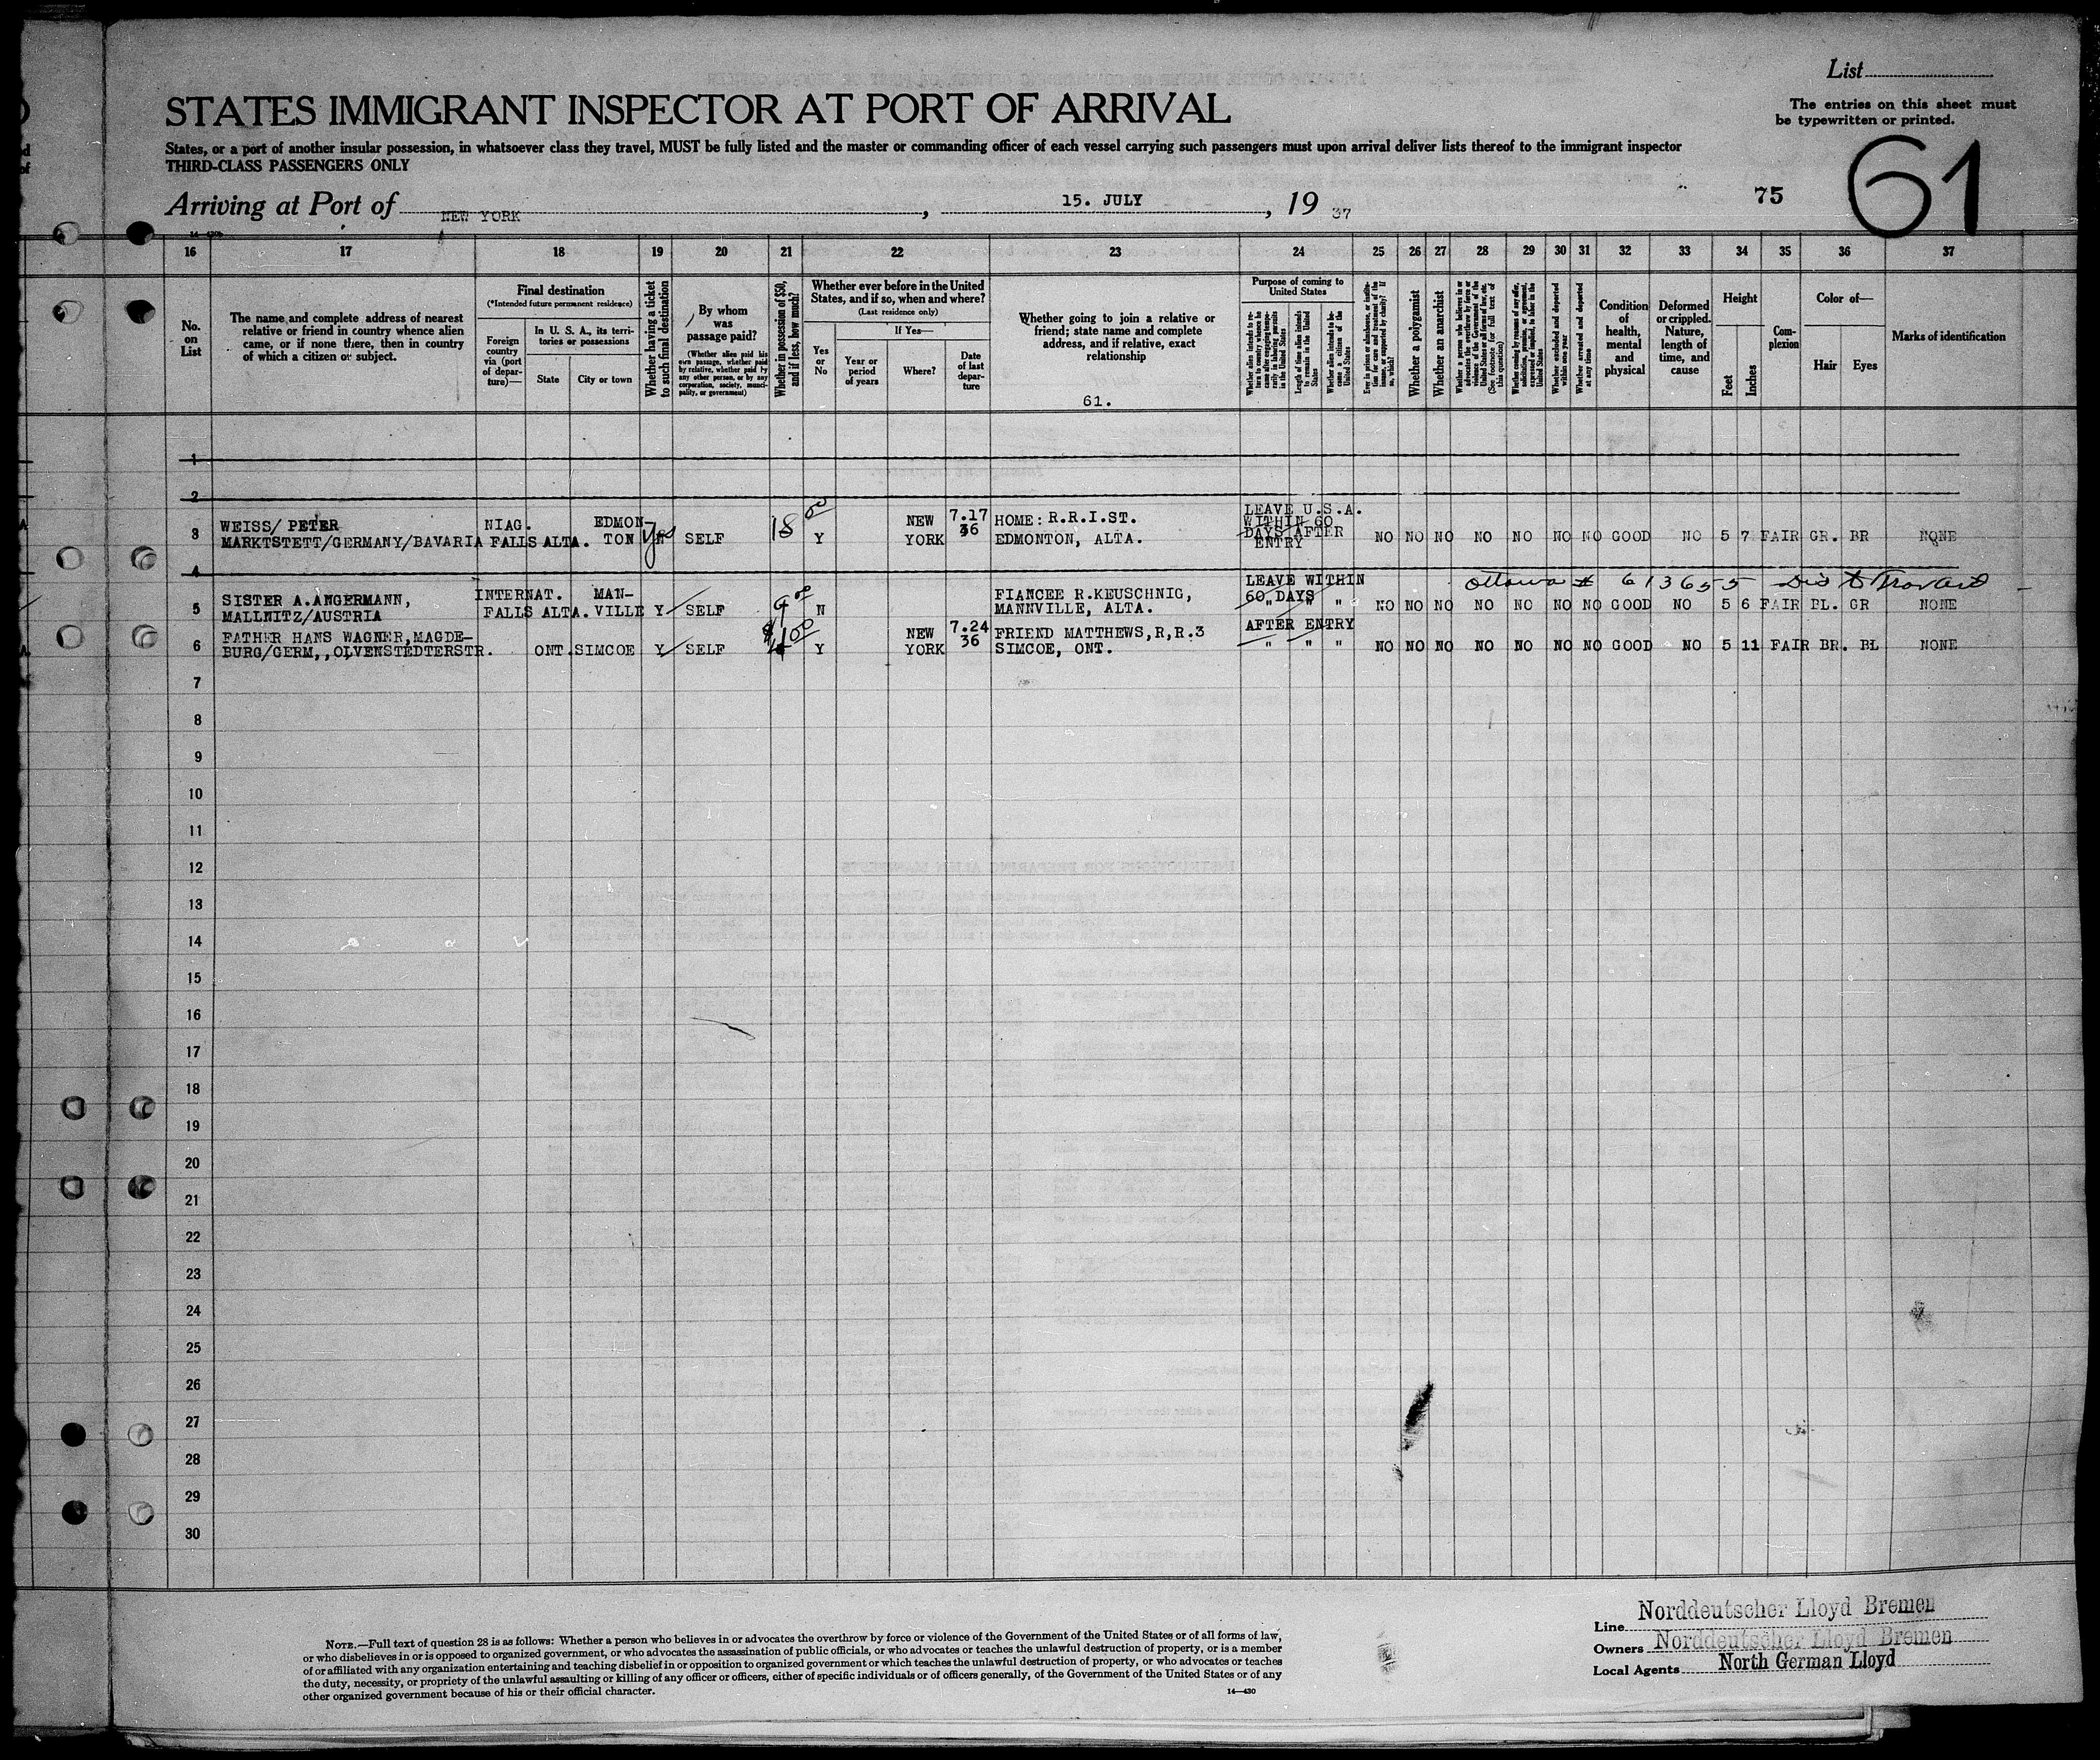 List
The entries on this sheet must
be typewritten or printed.
STATES IMMIGRANT INSPECTOR AT PORT OF ARRIVAL
States, or a port of another insular possession, in whatsoever class they travel, MUST be fully listed and the master or commanding officer of each vessel carrying such passengers must upon arrival deliver lists thereof to the immigrant inspector
THIRD-CLASS PASSENGERS ONLY
Arriving at Port of NEW YORK, 15. JULY, 19 37
75
61
16 17 18 19 20 21 22 23 24 25 26 27 28 29 30 31 32 33 34 35 36 37
No. on List
The name and complete address of nearest
relative or friend in country whence alien
came, or if none there, then in country
of which a citizen or subject.
Final destination
(*Intended future permanent residence)
Foreign
country
via (port
of depar-
ture)—
In U. S. A., its terri-
tories or possessions
State
City or town
Whether having a ticket
to such final destination
By whom
was
passage paid?
(Whether alien paid his
own passage, whether paid
by relative, whether paid by
any other person, or by any
corporation, society, munici-
pality, or government)
Whether in possession of $50,
and if less, how much?
Whether ever before in the United
States, and if so, when and where?
(Last residence only)
Yes
or
No
If Yes—
Year or
period
of years
Where?
Date
of last
depar-
ture
Whether going to join a relative or
friend; state name and complete
address, and if relative, exact
relationship
61.
Purpose of coming to
United States
Length of time alien intends
to remain in the United
States
Whether alien intends to be-
come a citizen of the
United States
Whether a polygamist
Whether an anarchist
Whether excluded and deported
within one year
Whether arrested and deported
at any time
Condition
of
health,
mental
and
physical
Deformed
or crippled.
Nature,
length of
time, and
cause
Height
Feet
Inches
Com-
plexion
Color of—
Hair
Eyes
Marks of identification
1
2
3 WEISS/ PETER
MARKTSTETT/GERMANY/BAVARIA
NIAG.
FALLS ALTA.
EDMON
TON
SELF 18 00 Y
NEW
YORK
7.17
36
HOME: R.R.I.ST.
EDMONTON, ALTA.
LEAVE U.S.A.
WITHIN 60
DAYS AFTER
ENTRY
NO NO NO NO NO NO NO GOOD NO 5 7 FAIR GR. BR NONE
4
Ottawa # 613655
5 SISTER A.ANGERMANN,
MALLNITZ/AUSTRIA
INTERNAT.
FALLS ALTA.
MAN-
VILLE
Y SELF 9 00 N
FIANCEE R.KEUSCHNIG,
MANNVILLE, ALTA.
LEAVE WITHIN
60 DAYS
" " "
NO NO NO NO NO NO NO GOOD NO 5 6 FAIR BL. GR NONE
6 FATHER HANS WAGNER,MAGDE-
BURG/GERM,,OLVENSTEDTERSTR.
ONT. SIMCOE Y SELF Y
NEW
YORK
7.24
36
FRIEND MATTHEWS,R,R.3
SIMCOE, ONT.
AFTER ENTRY
" " "
NO NO NO NO NO NO NO GOOD NO 5 11 FAIR BR. BL NONE
7
8
9
10
11
12
13
14
15
16
17
18
19
20
21
22
23
24
25
26
27
28
29
30
NOTE.—Full text of question 28 is as follows: Whether a person who believes in or advocates the overthrow by force or violence of the Government of the United States or of all forms of law,
or who disbelieves in or is opposed to organized government, or who advocates the assassination of public officials, or who advocates or teaches the unlawful destruction of property, or is a member
of or affiliated with any organization entertaining and teaching disbelief in or opposition to organized government or which teaches the unlawful destruction of property, or who advocates or teaches
the duty, necessity, or propriety of the unlawful assaulting or killing of any officer or officers, either of specific individuals or of officers generally, of the Government of the United States or of any
other organized government because of his or their official character.
14—430
Line Norddeutscher Lloyd Bremen
Owners Norddeutscher Lloyd Bremen
Local Agents North German Lloyd